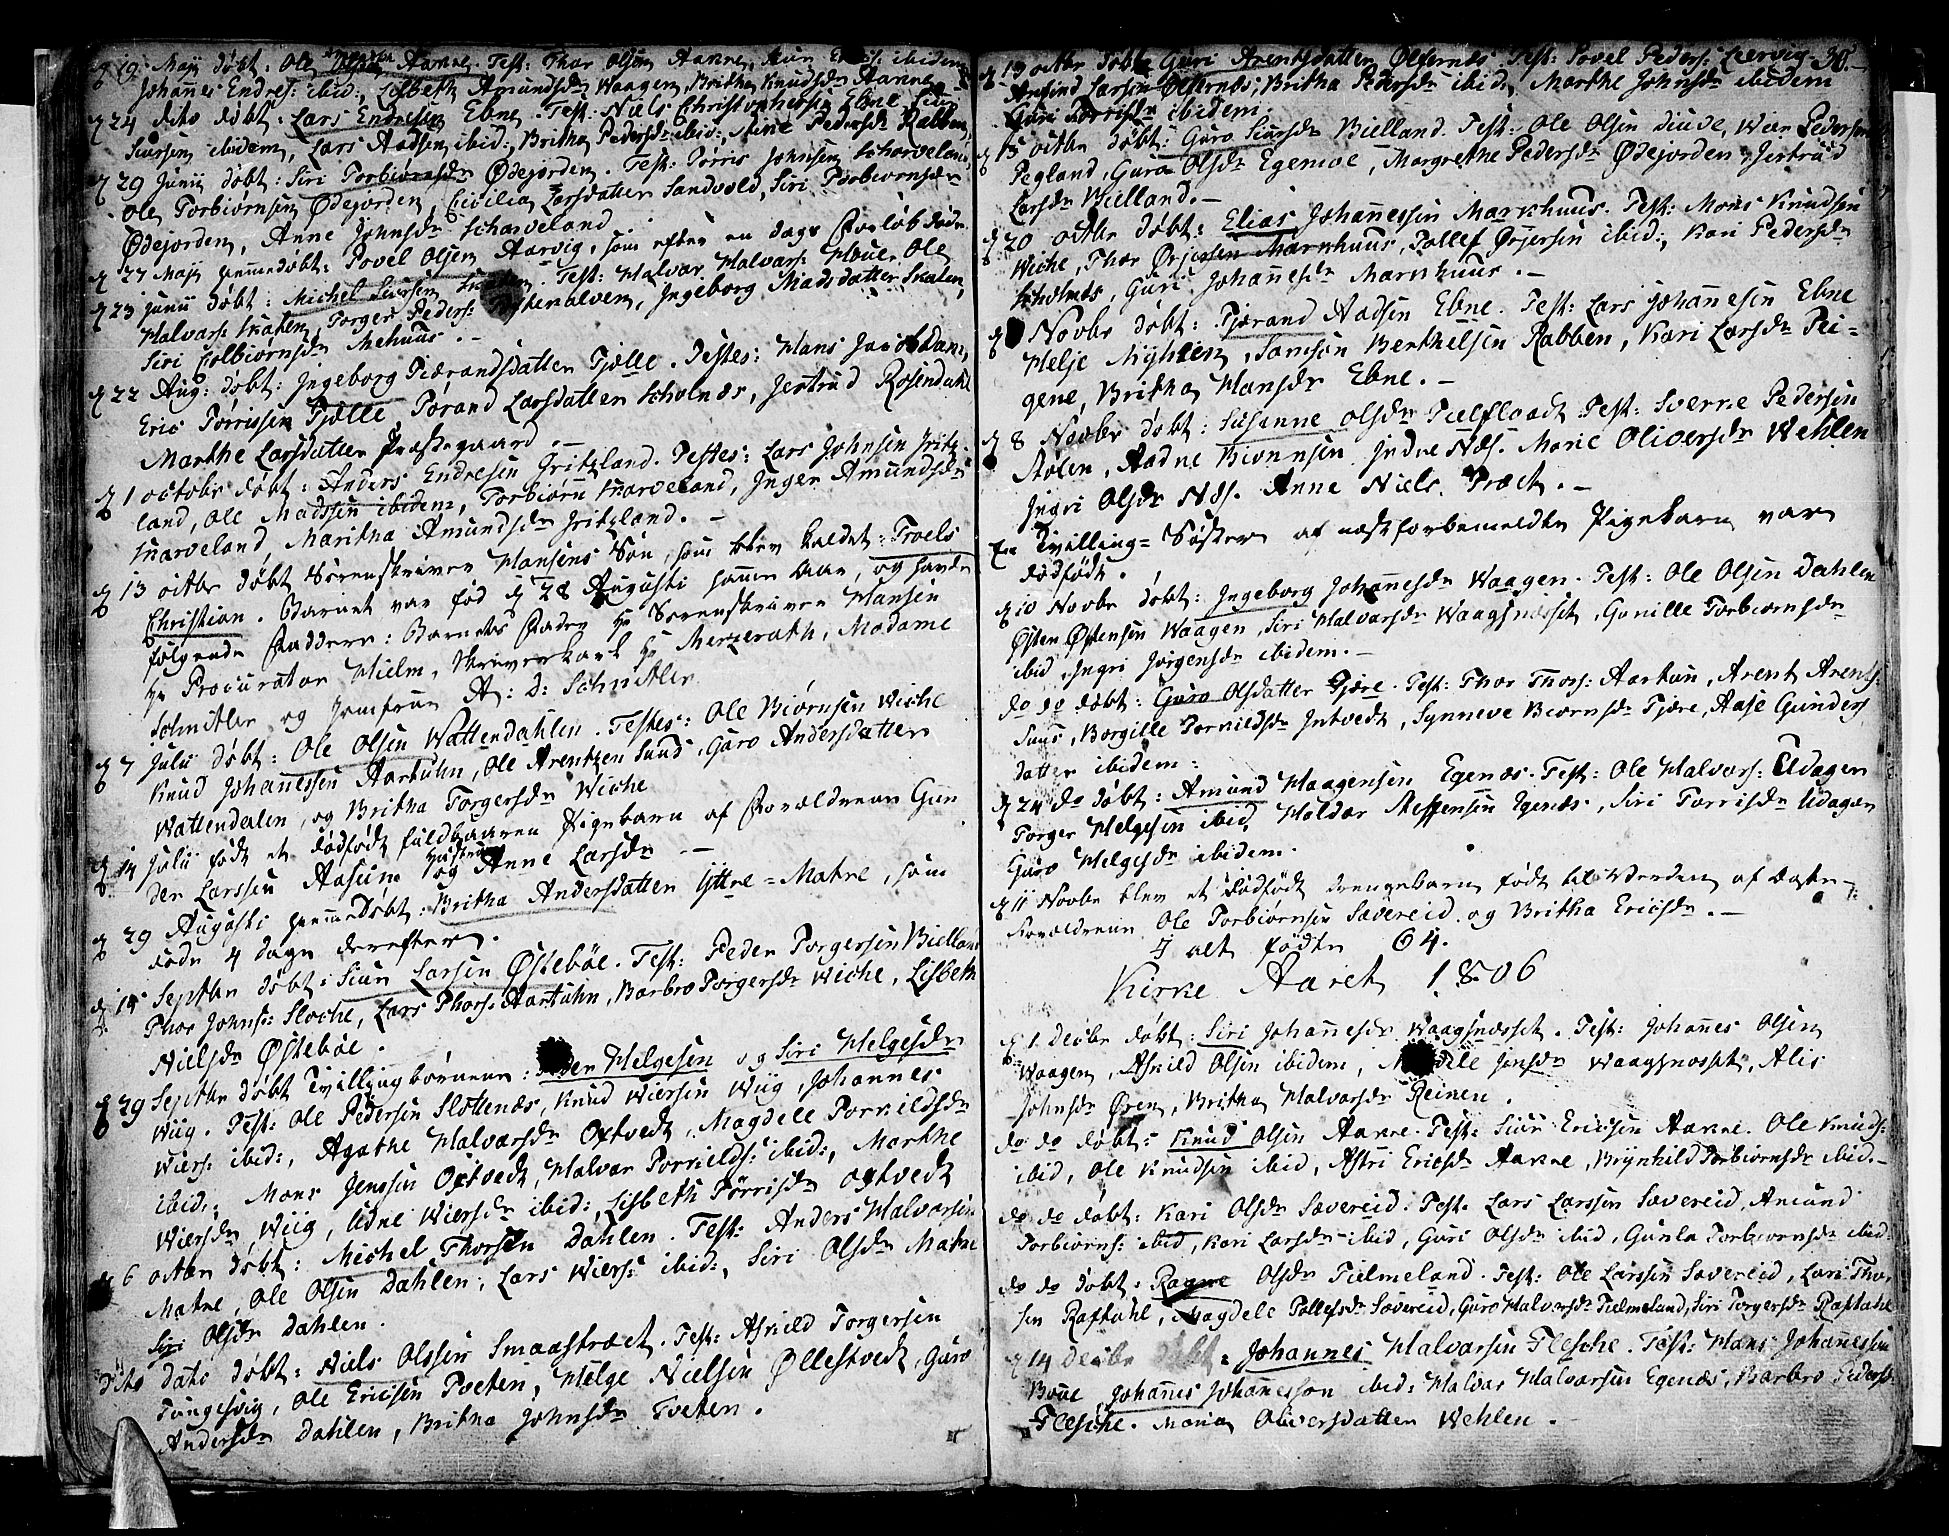 d 19 Maij døbt: Ole Aakre. Test: Thor Olsen Aakre, ibidem
Johanes Endres: ibid:, Lisbeth Amundsdr Waagen, Britha Knudsdr Aakre
d 24 dito døbt: Lars Endresen Ebne. Test: Niels Christophersen Ebne, Siur
Siursen ibidem, Lars Aadsen ibid:, Britha Pedersdr ibid:, Pedersdr Rabben
d 29 Junij døbt: Siri Torbiørnsdr Ødejorden. Test: Tørris Johnsen Scharveland
Ole Torbiørnsen Ødejorden, Cicilia Larsdatter Sandvold, Siri Torbiørnsdr
Ødejorden, Anne Johnsdr Scharveland
d 27 Maij hjemmedøbt: Povel Olsen Aarvig, som efter en dags Forløb døde
d 23 Junii døbt: Michel Siursen. Test: Halvar Halvars: Ole
Halvars: Skaten, Torger Peders:, Ingeborg Madsdatter Skaten,
Siri Colbiørnsdr Mehuus. -
d 22 Aug: døbt: Ingeborg Tiærandsdatter Fjælle. Testes: Hans Jacob Dam,
Eric Tørrissen Fjælle Tørand Larsdatter Scholnæs, Jertrud Rosendahl
Marthe Larsdatter Præstegaard. -
d 1 octobr døbt: Anders Endresen Fritzland. Testes: Lars Johnsen Fritz-
land, Ole Madssen ibidem, Torbiørn Skarveland, Inger Amundsdr
Skarveland, Maritha Amundsdr Fritzland. -
d 13 octbr døbt Sørenskriver Hansens Søn, som blev kaldet: Troels
Christian. Barnet var fød d 28 Augusti samme Aar, og havde
følgende Faddere: Barnets Fader Hr Sorenskriver Hansen
Hr Procurator Hielm, Skriverkarl Hr Merzerath, Madame
Schnitler og Jomfrue A: D: Schnitler
d 7 Julii døbt: Ole Olsen Wattendahlen. Testes: Ole Biørnsen Wiche
Knud Johannessen Aartuhn, Ole Arentzen Sund, Guro Andersdatter
Wattendalen, og Britha Torgersdr Wiche
d 14 Julii født et dødfødt fuldbaaren Pigebarn af Forældrene Gun
der Larssen Aasum og Hustrue Anne Larsdr -
d 29 Augusti hjemmedøbt: Britha Andersdatter Yttre-Matre, som
døde 4 dage derefter.
d 15 Septbr døbt: Siur Larsen Østebøe. Test: Peder Torgersen Bielland
Thor Johns: Sloche, Lars Thors: Aartuhn, Barbro Torgersdr Wiche, Lisbeth
Nielsdr Østebøe.
d 29 Septbr døbt Tvillingbørnene: Peder Helgesen og Siri Helgesdr
Wiig. Test: Ole Pedersen Slottenæs, Knud Wiersen Wiig, Johannes
Wiers: ibid:, Agathe Halvarsdr Oxtvedt, Magdele Torkildsdr
ibid:, Mons Jenssen Oxtvedt, Halvar Torkilds: ibid:, Marthe
Wiersdr Wiig, Udne Wiersdr ibid:, Lisbeth Tørrisdr Oxtvedt
d 6 octbr døbt: Michel Thorsen Dahlen. Test: Anders Halvarsen
Matre, Ole Olsen Dahlen, Lars Wiers: ibid:, Siri Olsdr Matre
Siri Olsdr Dahlen.
Dito dato døbt: Niels Olssen Smaastræet. Test: Askild Torgersen
Tungesvig, Ole Ericsen Tveten, Helge Nielsen Øllestvedt, Guro
Andersdr Dahlen, Britha Johnsdr Tveten.
30.
d 13 octbr døbt Guri Arentsdatter Ølfernes. Test: Povel Peders: Leervig
Anfind Larsen Ølfernes, Britha Pedersdr ibid:, Marthe Johnsdr ibidem
Guri Torrisdr ibidem.
d 15 octbr døbt: Guro Siursdr Bielland. Test: Ole Olsen Diuve, Wier Pedersen
Pegland, Guro Olsdr Egemoe, Margrethe Pedersdr Ødejorden, Jertrud
Larsdr Bielland. -
d 20 octbr døbt: Elias Johannessen Markhuus. Test: Mons Knudsen
Wiche, Thor Ørjersen Markhuus, Tollef Ørjersen ibid:, Kari Pedersdr
Scholnes, Guri Johannesdr Markhuus. -
d Novbr døbt: Tjærand Aadsen Ebne. Test: Lars Johannesen Ebne
Helje Myhlen, Samson Berthelsen Rabben, Kari Larsdr Tei-
gene, Britha Hansdr Ebne. -
d 8 Novbr døbt: Susanne Olsdr Tielfloadt Test: Sverke Pedersen
Stolen, Aadne Biønnsen Indre Næs. Marie Oliversdr Wehlen
Ingri Olsdr Næs. Anne Niels. Træet. -
En Tvilling-Søster af næstforbemeldte Pigebarn var
dødfødt.
d 10 Novbr døbt: Ingeborg Johannesdr Waagen. Test: Ole Olsen Dahlen
Østen Østensen Waagen, Siri Halvarsdr Waagsnæsset, Gunille Torbiørnsdr
ibid, Ingri Jørgensdr ibidem. -
do do døbt: Guro Olsdatter Fjære. Test: Thor Thors: Aartun, Arent Arents:
Sund, Borgille Torkildsdr Indtvedt, Synneve Biørnsdr Fjære, Aase Gunders
datter ibidem:
d 24 do døbt: Amund Haagensen Egenæs. Test: Ole Halvars: Udagen
Torger Helgesen ibid, Haldor Steffensen Egenæs, Siri Torrisdr Udagen
Guro Helgesdr ibidem.
d 11 Novbr blev et dødfødt Drengebarn født til Verden af Ægte-
Forældrene Ole Torbiørnsen Sævereid og Britha Ericsdr. -
I alt fødte 64.
Kirke Aaret 1806
d 1 Decbr døbt: Siri Johannesdr Waagsnæsset. Test: Johannes Olsen
Waagen, Askild Olsen ibidem, Magdele Jensdr Waagsnosset, Alis
Johnsdr Øren, Britha Halvarsdr Reinen.
do do døbt: Knud Olsen Aakre. Test: Siur Ericsen Aakre. Ole Knuds:
ibid, Ole Knudsen ibid, Astri Ericsdr Aakre, Brynhild Torbiørnsdr ibid. -
do do døbt: Kari Olsdr Sævereid. Test. Lars Larssen Sævereid, Amund
Torbiørns: ibid, Kari Larsdr ibid, Guri Olsdr ibid, Gunla Torbiørnsdr ibid
do do døbt: Ragne Olsdr Tielmeland. Test: Ole Larssen Sævereid, Lars Thor
sen Raftahl, Magdele Tollefsdr Sævereid, Guro Halvorsdr Tielmeland, Siri Torgersdr Raftahl
d 14 Decbr døbt: Johannes Halvarsen Flesche. Test: Hans Johannessen
Boue, Johannes Johannessen ibid: Halvar Halvarsen Egenæs, Barbro Pedersd
Flesche. Maria Oliversdatter Wehlen. -